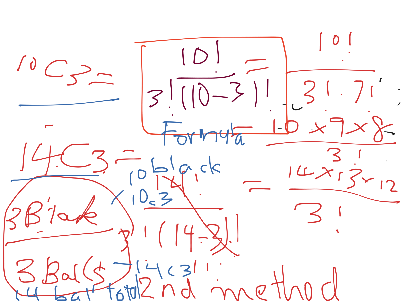 10C3 = 10! / 3!(10-3)! = 10! / 3!7!
Formula = 10 x 9 x 8 / 3!
14C3 = 14! / 3!(14-3)! = 14 x 13 x 12 / 3!
10 black
3 Black 10c3
3 Balls 14c3
14 ball total 2nd method